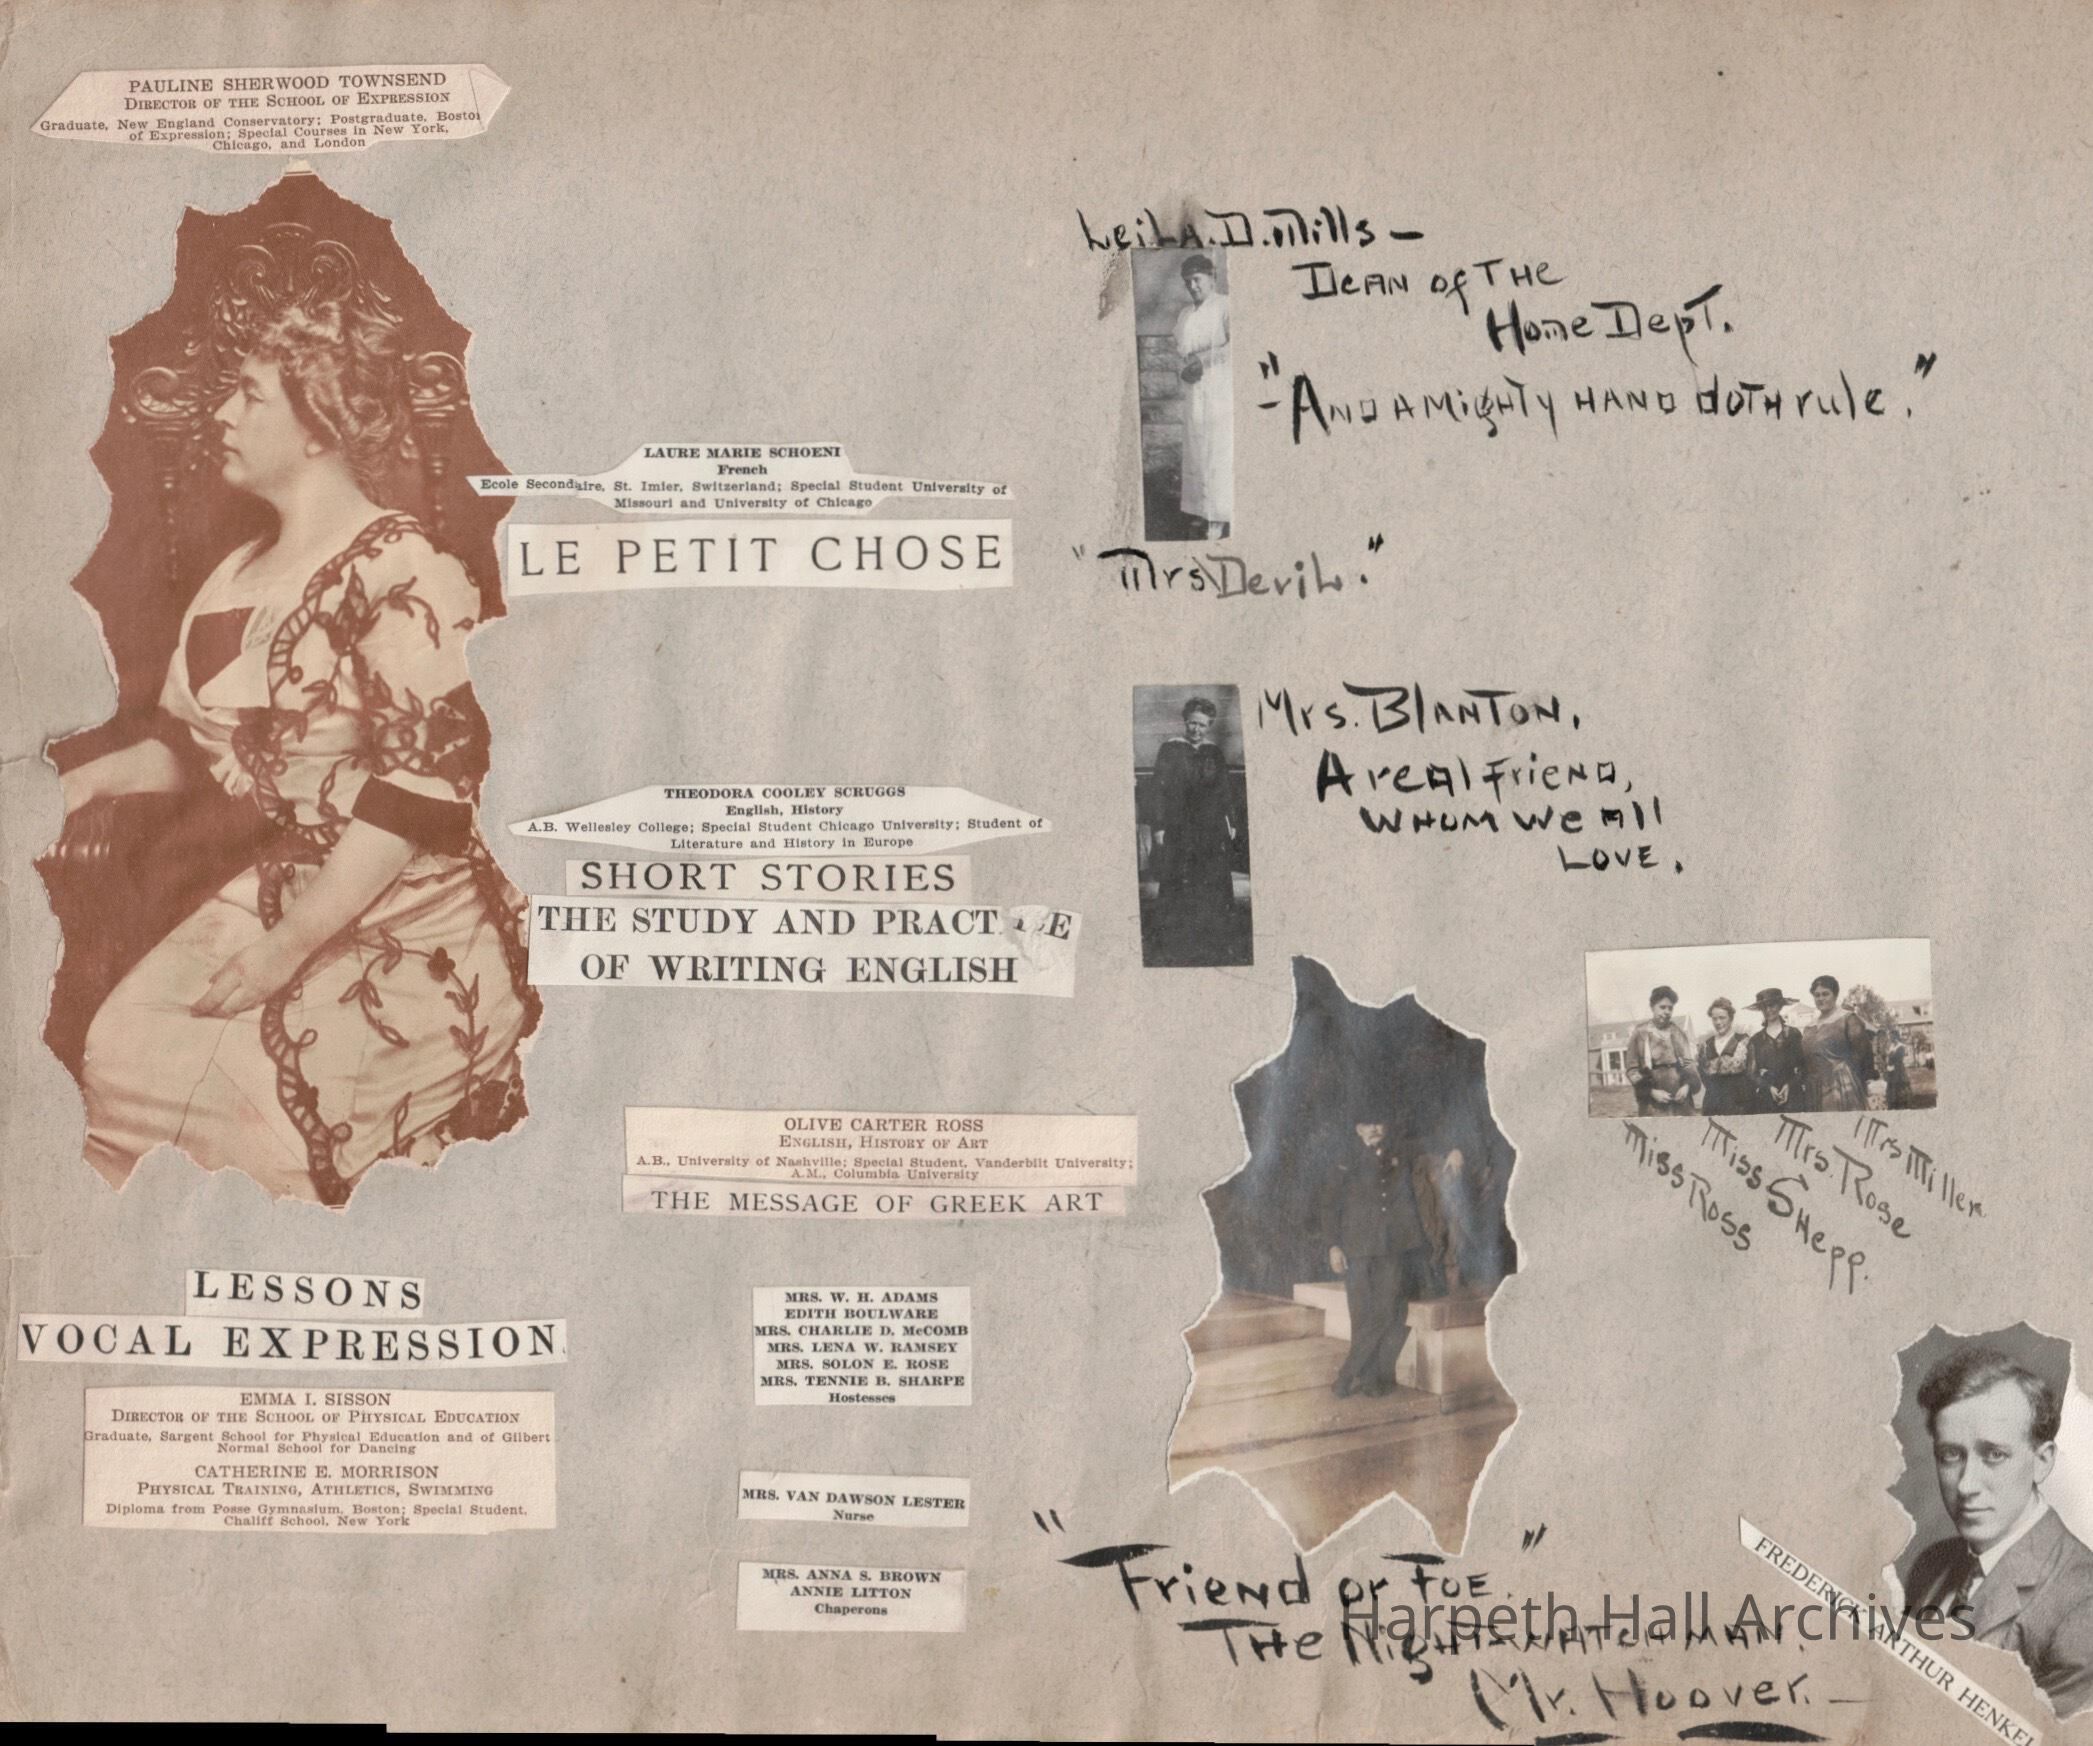 PAULINE SHERWOOD TOWNSEND
DIRECTOR OF THE SCHOOL OF EXPRESSION
Graduate, New England Conservatory; Postgraduate, Bosto
of Expression; Special Courses in New York,
Chicago, and London
LAURE MARIE SCHOENI
French
Ecole Secondaire, St. Imier, Switzerland; Special Student University of
Missouri and University of Chicago
LE PETIT CHOSE
THEODORA COOLEY SCRUGGS
English, History
A.B. Wellesley College; Special Student Chicago University; Student of
Literature and History in Europe
SHORT STORIES
THE STUDY AND PRACTICE
OF WRITING ENGLISH
OLIVE CARTER ROSS
ENGLISH, HISTORY OF ART
A.B., University of Nashville; Special Student, Vanderbilt University;
A.M., Columbia University
THE MESSAGE OF GREEK ART
LESSONS
VOCAL EXPRESSION
EMMA I. SISSON
DIRECTOR OF THE SCHOOL OF PHYSICAL EDUCATION
Graduate, Sargent School for Physical Education and of Gilbert
Normal School for Dancing
CATHERINE E. MORRISON
PHYSICAL TRAINING, ATHLETICS, SWIMMING
Diploma from Posse Gymnasium, Boston; Special Student,
Chalif School, New York
MRS. W. H. ADAMS
EDITH BOULWARE
MRS. CHARLIE D. McCOMB
MRS. LENA W. RAMSEY
MRS. SOLON E. ROSE
MRS. TENNIE B. SHARPE
Hostesses
MRS. VAN DAWSON LESTER
Nurse
MRS. ANNA S. BROWN
ANNIE LITTON
Chaperons
Leila.D.Mills —
Dean of The
Home Dept.
"— And a Mighty hand doth rule."
"Mrs Devil."
Mrs. Blanton,
A real friend,
whom we all
love.
Miss Ross
Miss Shepp.
Mrs. Rose
Mrs Miller
"Friend or Foe."
The Night-watch man.
Mr. Hoover. —
FREDERICK ARTHUR HENKEL
Harpeth Hall Archives